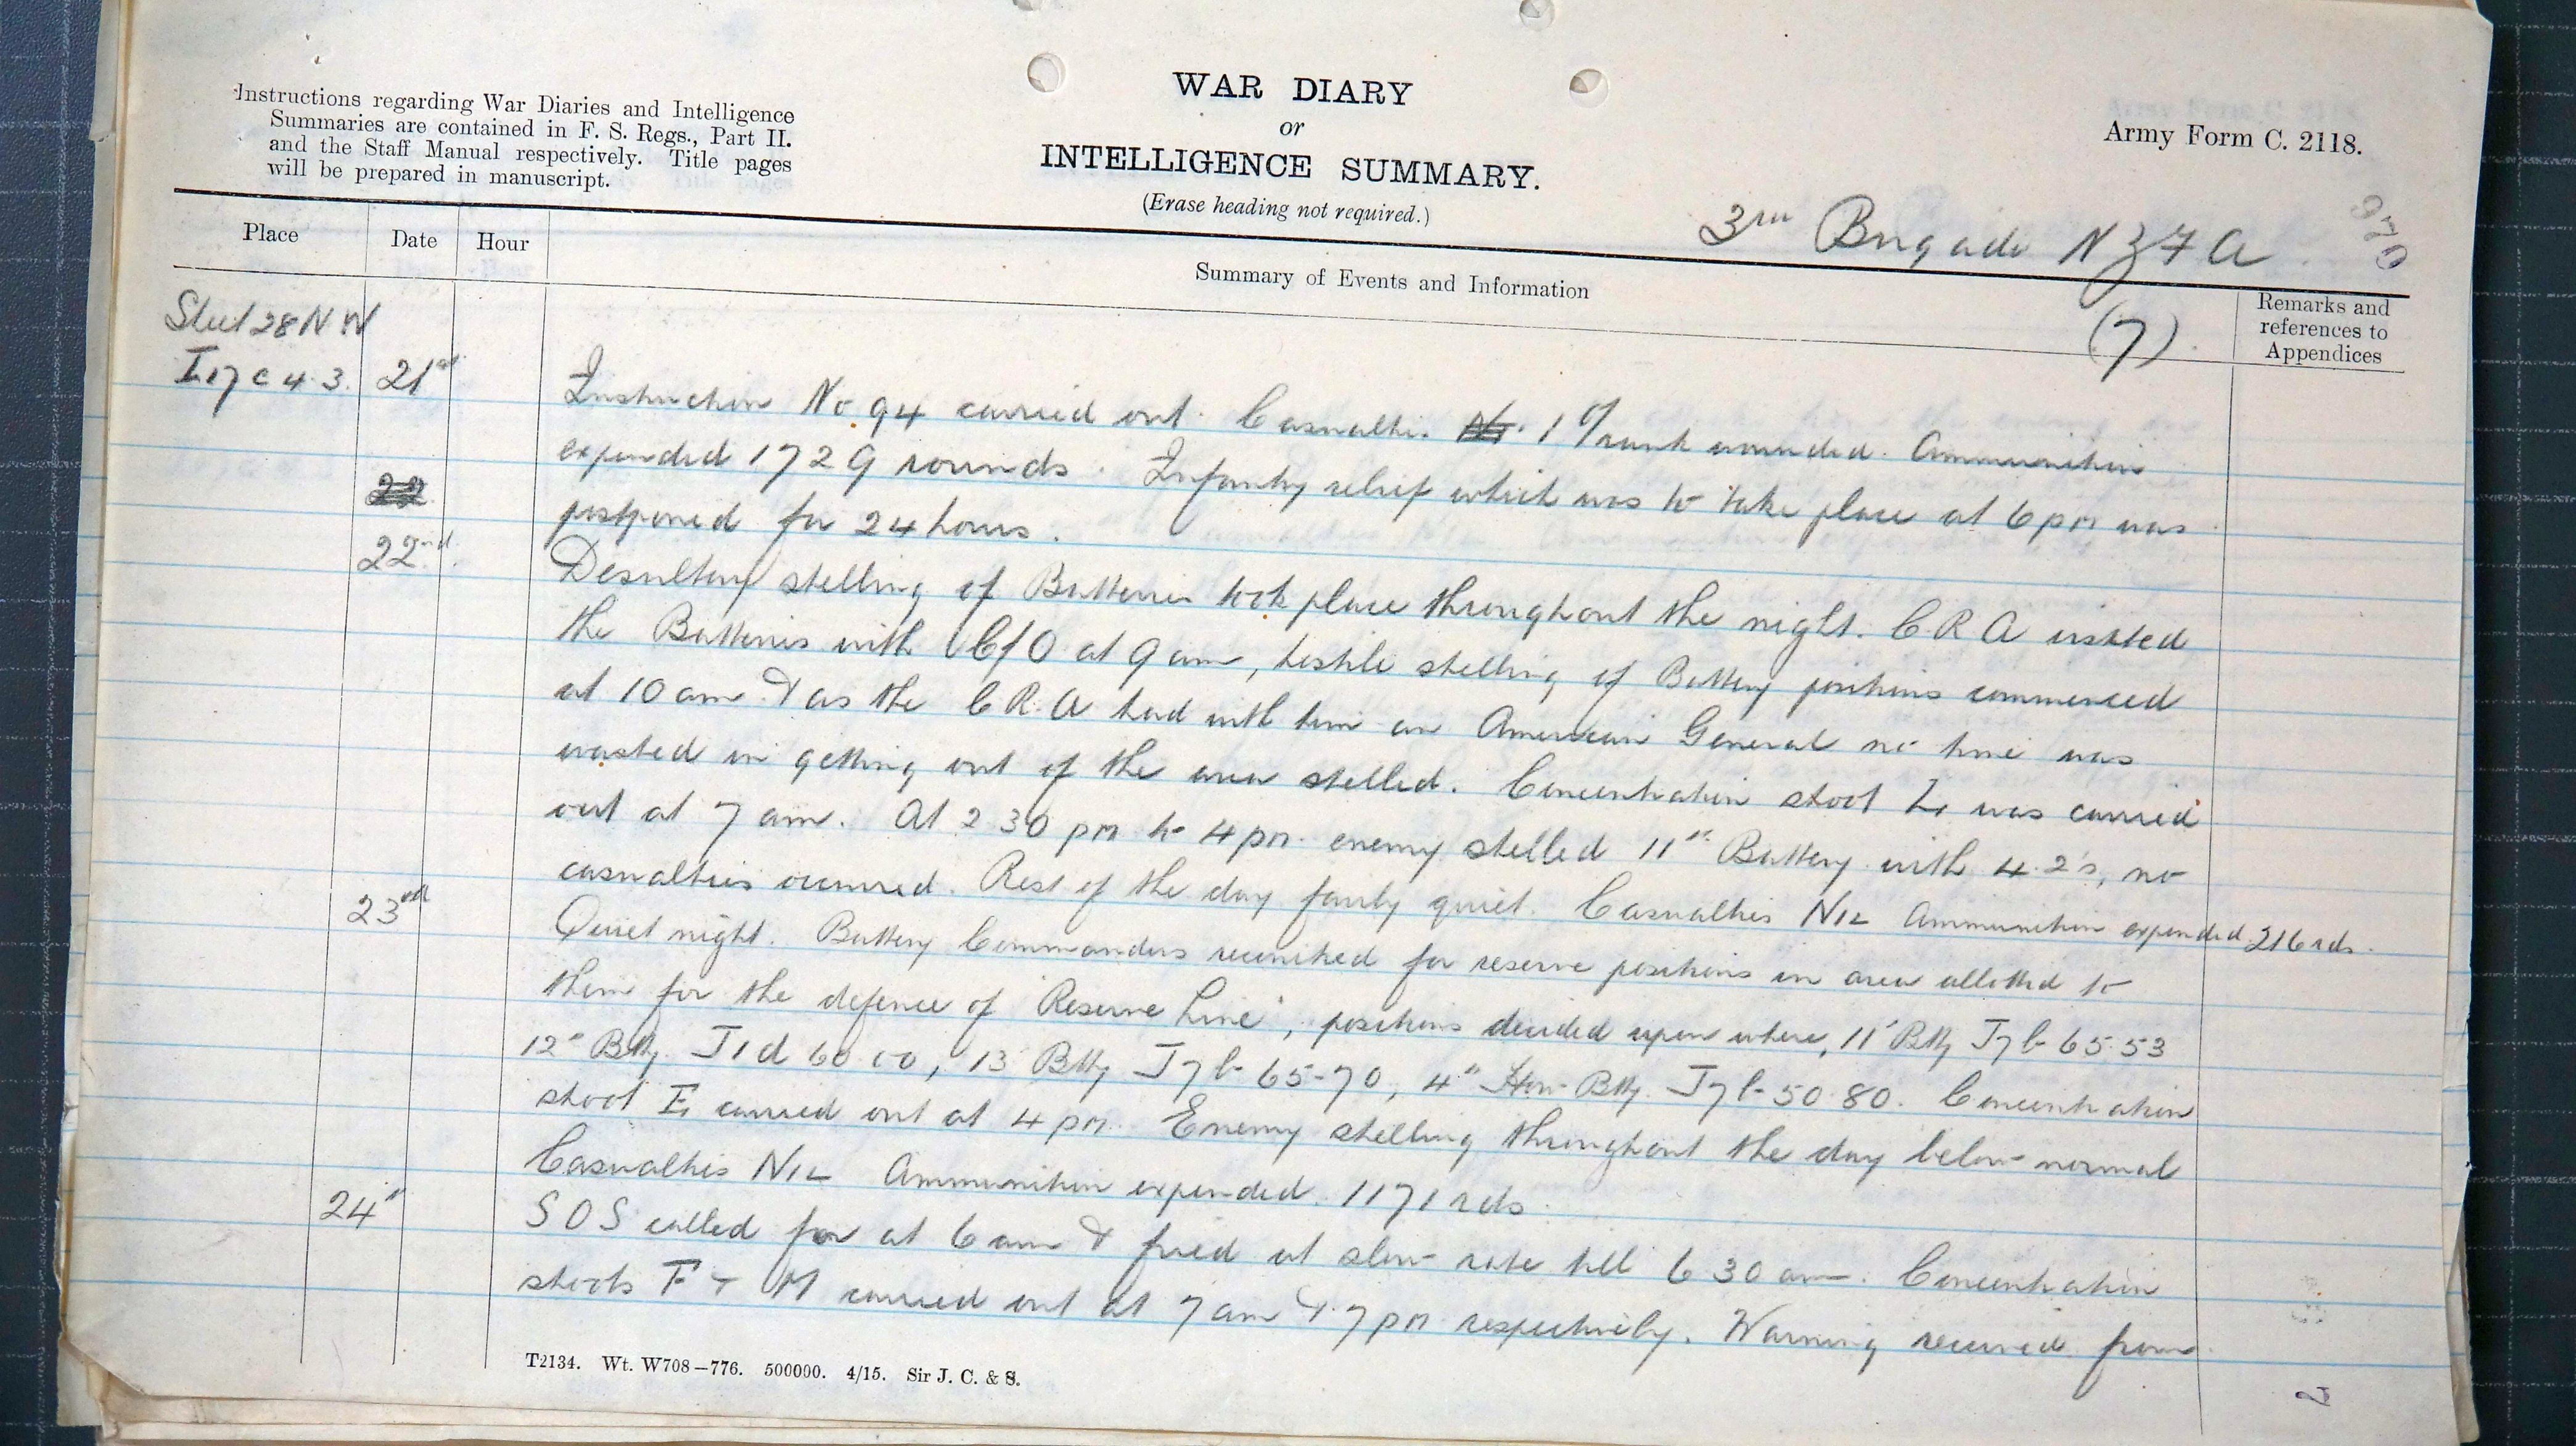 Instructions regarding War Diaries and Intelligence
Summaries are contained in F. S. Regs., Part II.
and the Staff Manual respectively. Title pages
will be prepared in manuscript.
WAR DIARY
or
INTELLIGENCE SUMMARY.
(Erase heading not required.)
Army Form C. 2118.
3rd Brigade N Z F A
970
Place Date Hour Summary of Events and Information
Remarks and
references to
Appendices
(7)
Sheet 28 N W
I 17 c 4.3. 21st Instruction No 94 carried out. Casualties 1 O/rank wounded. Ammunition
expended 1729 rounds. Infantry relief which was to take place at 6 pm was
22
postponed for 24 hours.
22nd. Desultory shelling of Batteries took place throughout the night. C.R.A visited
the Batteries with C/O at 9 am, hostile shelling of Battery positions commenced
at 10 am & as the C.R.A had with him an American General no time was
wasted in getting out of the area shelled. Concentration shoot L, was carried
out at 7 am. At 2 30 pm to 4 pm. enemy shelled 11th Battery with 4.2's, no
casualties occurred. Rest of the day fairly quiet. Casualties NIL Ammunition expended 216 rds.
23rd Quiet night. Battery Commanders reconnoitred for reserve positions in area allotted to
them for the defence of "Reserve Line", positions decided upon where, 11" Btty J7b 65.53
12" Btty. J1d 60.00, 13 Btty J7b 65-70, 4" How Btty. J7b 50.80. Concentration
shoot E, carried out at 4 pm. Enemy shelling throughout the day below normal
Casualties NIL Ammunition expended. 1171 rds
24" S O S called for at 6 am & fired at slow rate till 6 30 am. Concentration
shoots F + M carried out at 7 am & 7 pm respectively. Warning received from
T2134. Wt. W708—776. 500000. 4/15. Sir J. C. & S.